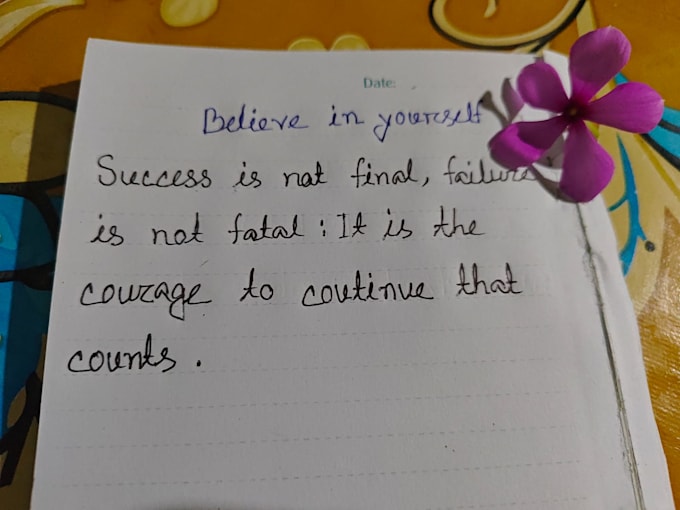 Date:
Believe in yourself
Success is not final, failure
is not fatal : It is the
courage to continue that
counts.